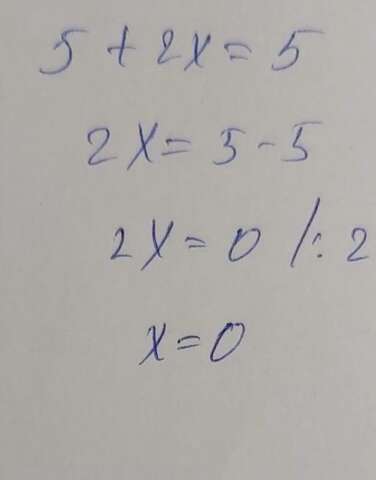 5 + 2x = 5
2x = 5 - 5
2x = 0 /: 2
x = 0